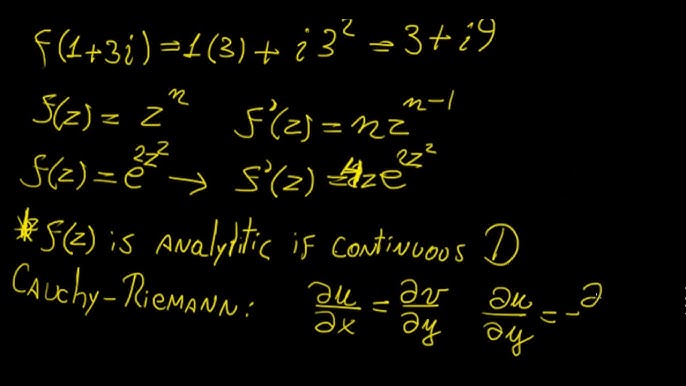 f(1+3i) = 1(3) + i3² = 3 + i9
f(z) = zⁿ f'(z) = nzⁿ⁻¹
f(z) = e^{2z²} → f'(z) = 4ze^{2z²}
* f(z) is ANAlytitic if CONTINUOUS D
CAUchy-RiEMANN: ∂u/∂x = ∂v/∂y ∂u/∂y = -∂